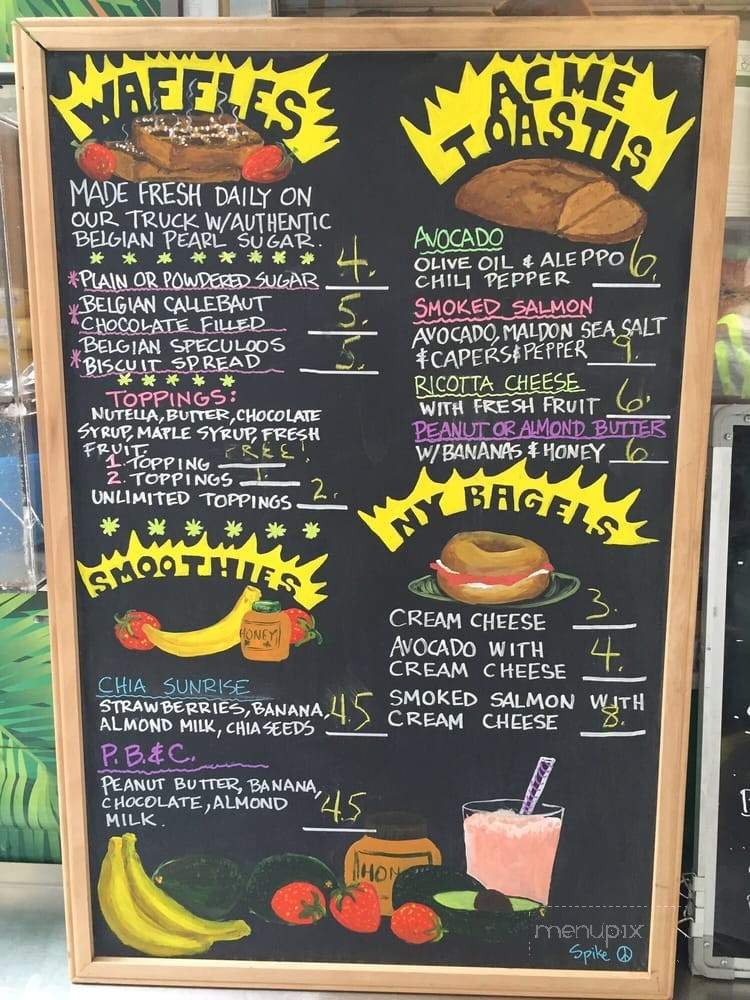 WAFFLES
MADE FRESH DAILY ON
OUR TRUCK W/AUTHENTIC
BELGIAN PEARL SUGAR.
* * * * * * * *
*PLAIN OR POWDERED SUGAR 4.
*BELGIAN CALLEBAUT
CHOCOLATE FILLED 5.
*BELGIAN SPECULOOS
BISCUIT SPREAD 5.
* * * * *
TOPPINGS:
NUTELLA, BUTTER, CHOCOLATE
SYRUP, MAPLE SYRUP, FRESH
FRUIT.
1. TOPPING FREE!
2. TOPPINGS 1.
UNLIMITED TOPPINGS 2.
* * * * * *
SMOOTHIES
HONEY
CHIA SUNRISE
STRAWBERRIES, BANANA,
ALMOND MILK, CHIA SEEDS 4.5
P.B.&C.
PEANUT BUTTER, BANANA,
CHOCOLATE, ALMOND
MILK. 4.5
ACME
TOASTIS
AVOCADO
OLIVE OIL & ALEPPO
CHILI PEPPER 6.
SMOKED SALMON
AVOCADO, MALDON SEA SALT
& CAPERS & PEPPER 9.
RICOTTA CHEESE
WITH FRESH FRUIT 6.
PEANUT OR ALMOND BUTTER
W/BANANAS & HONEY 6
NY BAGELS
CREAM CHEESE 3.
AVOCADO WITH
CREAM CHEESE 4.
SMOKED SALMON WITH
CREAM CHEESE 8.
HON
menupix
Spike